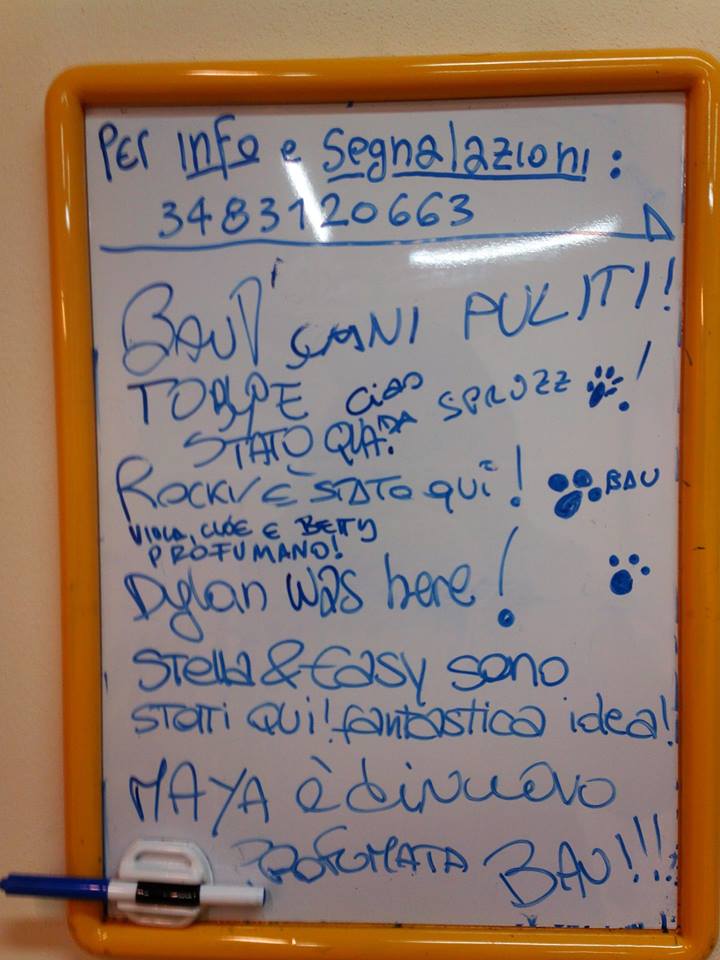 Per info e Segnalazioni:
3483120663
BAU CANI PULITI!
CIAO DA SPRUZZ!
STATO QUA!
ROCKY È STATO QUI! BAU
VIOLA, CLOE E BETTY
PROFUMANO!
Dylan was here!
Stella & Easy sono
stati QUI! fantastica idea!
MAYA è di nuovo
PROFUMATA BAU!!!